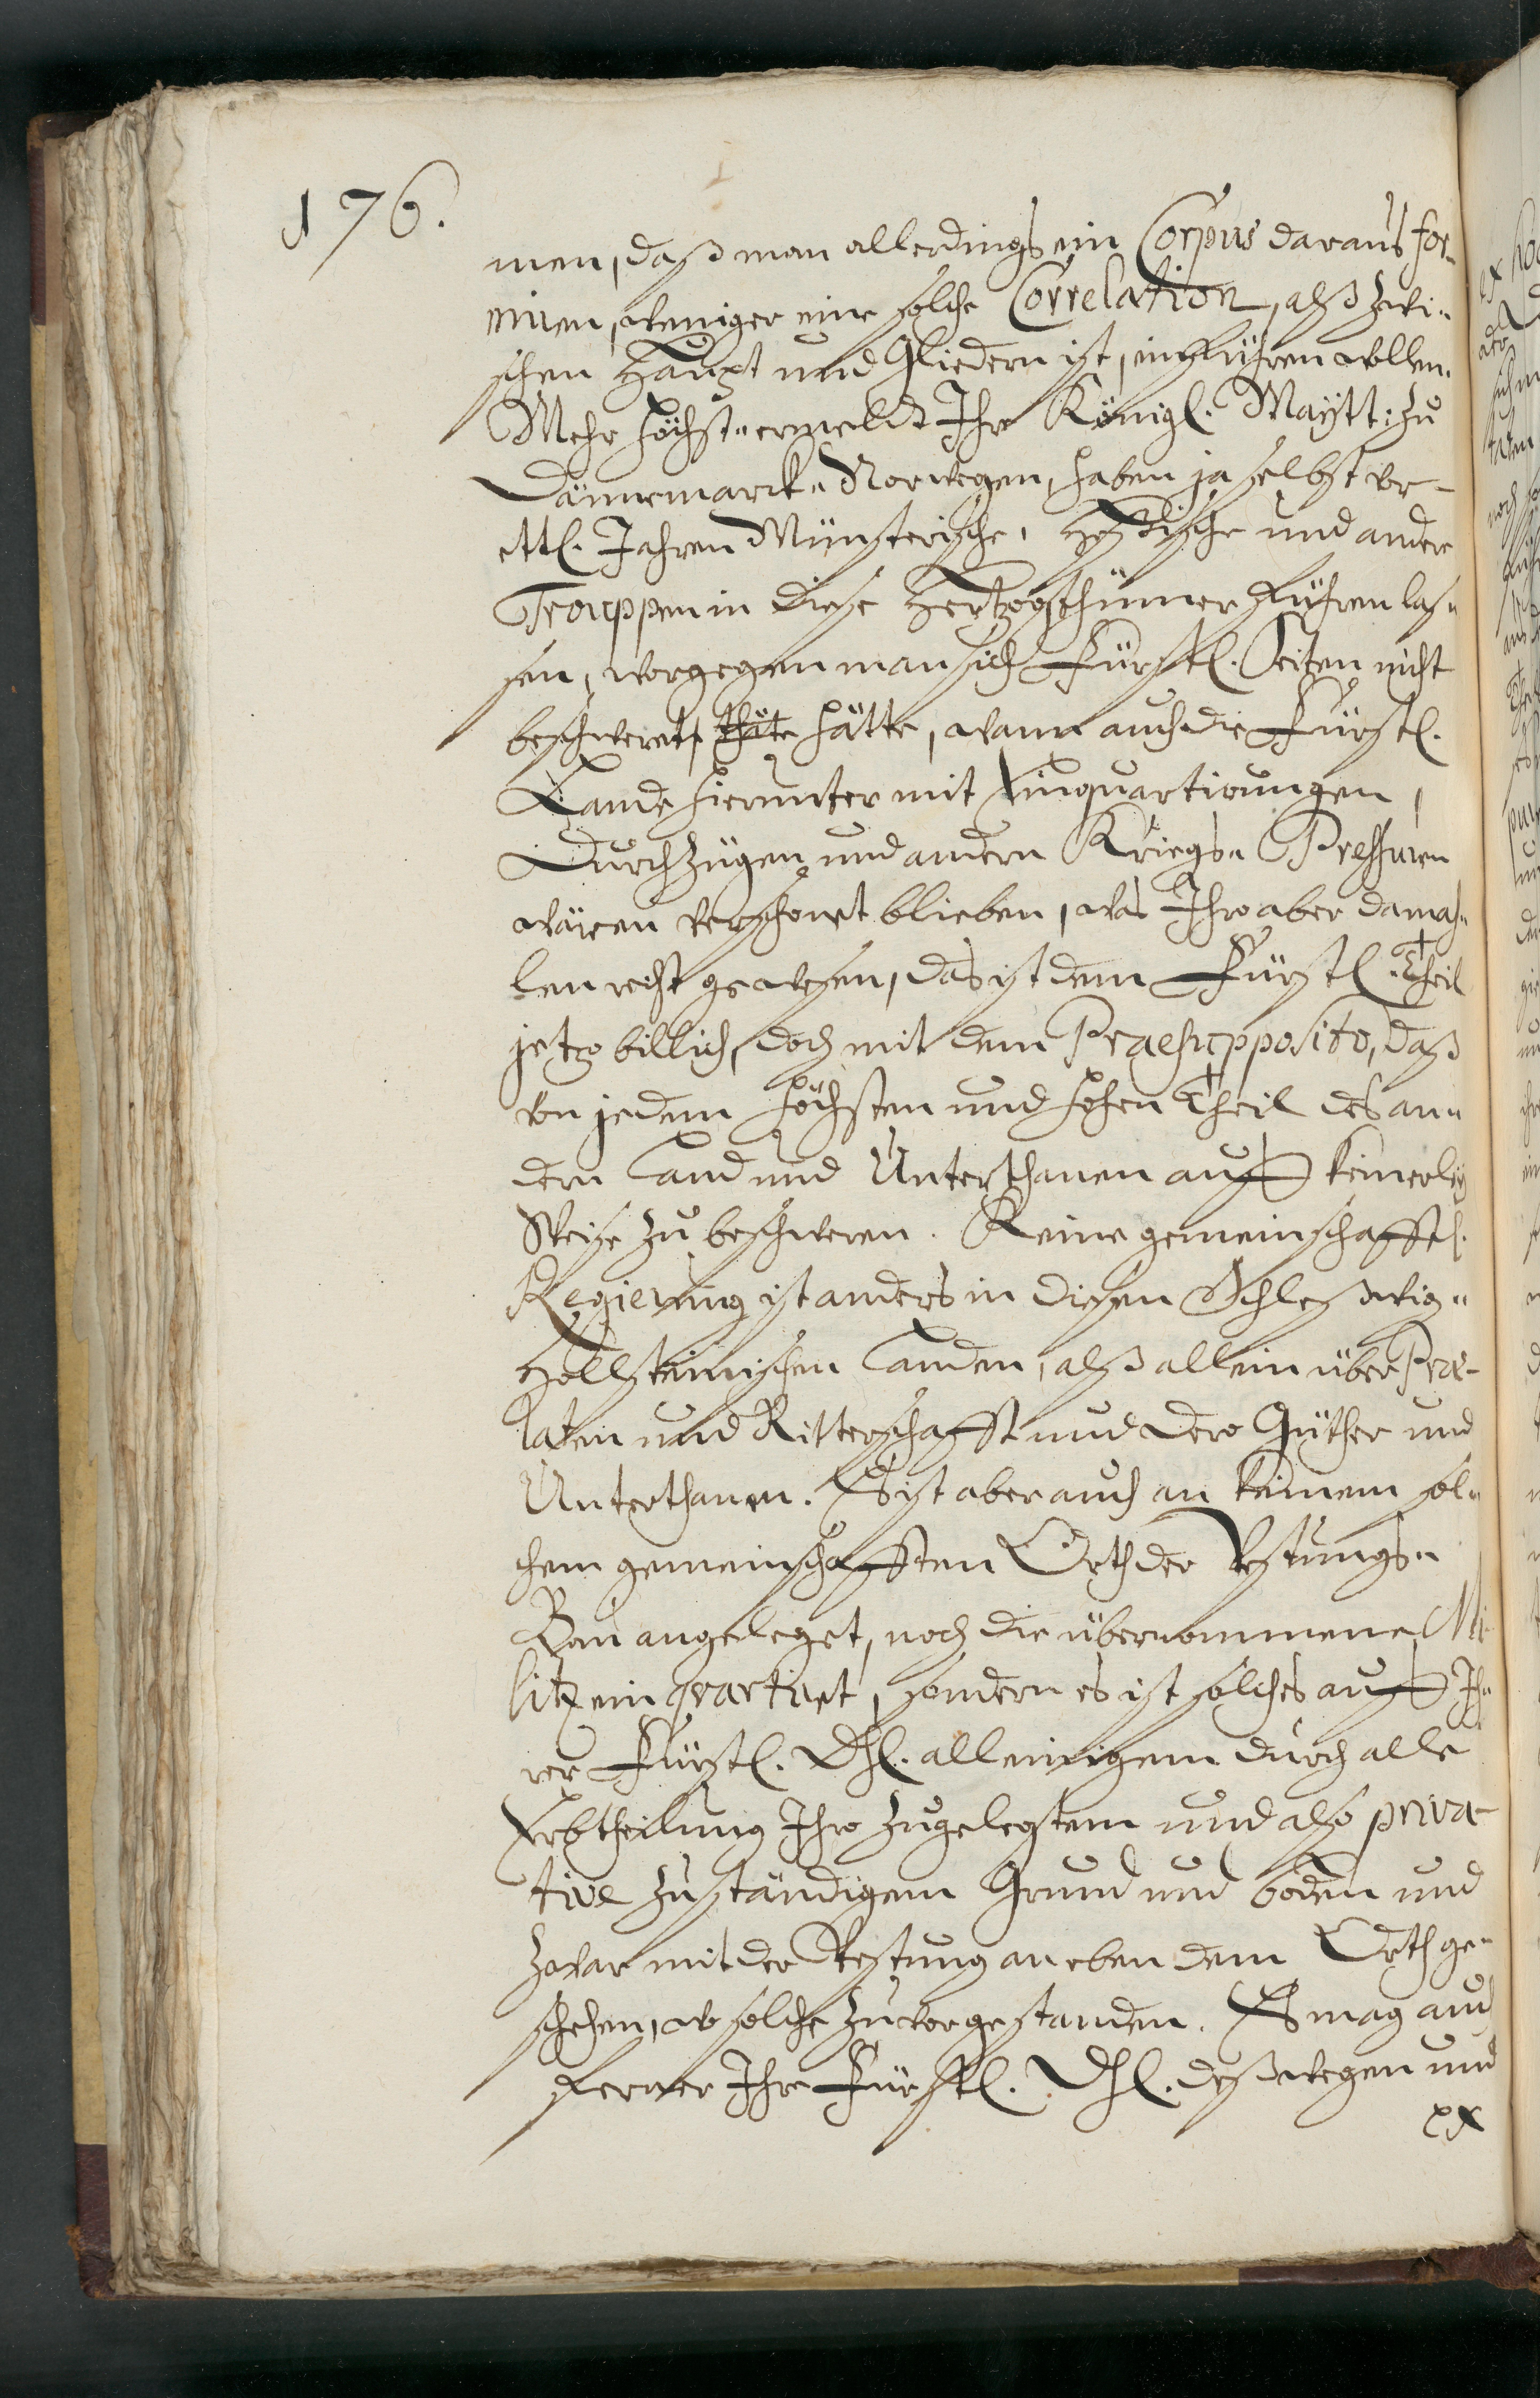 176.
men, daß man allerdings ein Corpus daraus for-
miren, weniger eine solche Correlation, alß zwi-
schen Haupt und Gliedern ist, einführen wollen.
Mehr höchst-ermeldt Ihr Königl. Maytt: zu
Dännemarck-Norwegen, haben ja selbst vor
ettl. Jahren Münsterische, Heßische und andere
Trouppen in diese Hertzogthümer führen las-
sen, worgegen man sich Fürstl. Seiten nicht
beschweret hätte, wann auch die Fürstl.
Lande hierunter mit Einquartirungen,
Durchzügen und andern Kriegs-Pressuren
wären verschonet blieben, was Ihro aber damah-
len recht gewesen, das ist dem Fürstl. Theil
jetzo billich, doch mit dem Praesupposito, daß
von jedem höchsten und hohen Theil des an-
dern Land und Unterthanen auff keinerley
Weise zu beschweren. Keine gemeinschafftl.
Regierung ist anders in diesen Schleßwig-
Hollsteinischen Landen, alß allein über Præ-
laten und Ritterschafft und dero Güther und
Unterthanen. Es ist aber auch an keinem sol-
chem gemeinschafften Orth der Vestungs-
Bau angeleget, noch die übernommene Mi-
litz ein quartiret, sondern es ist solches auff Ih-
rer Fürstl. Dhl. alleinigem durch alle
Erbtheilung Ihro zugelegtem und also priva-
tive zuständigem Grund und boden und
zwar mit der Vestung an eben dem Orth ge-
schehen, wo solche zuvor gestanden. Es mag auch
ferner Ihr Fürstl. Dhl. deßwegen und
ex